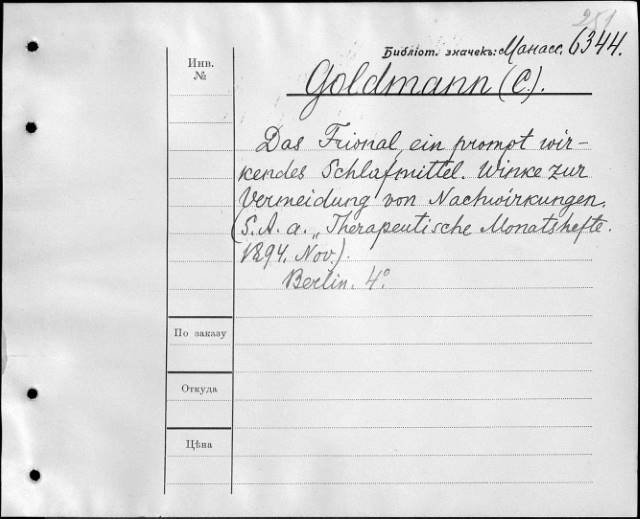 251
Библіот. значекъ: Манасс. 6344.
Инв.
№
Goldmann (C.).
Das Trional, ein prompt wir-
kendes Schlafmittel. Winke zur
Vermeidung von Nachwirkungen.
(S. A. a. „Therapeutische Monatshefte.
1894. Nov.).
Berlin. 4°.
По заказу
Откуда
Цѣна